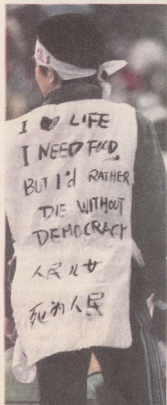 I ♥ LIFE
I NEED FOOD
BUT I'd RATHER
DIE WITHOUT
DEMOCRACY
人民
死为人民